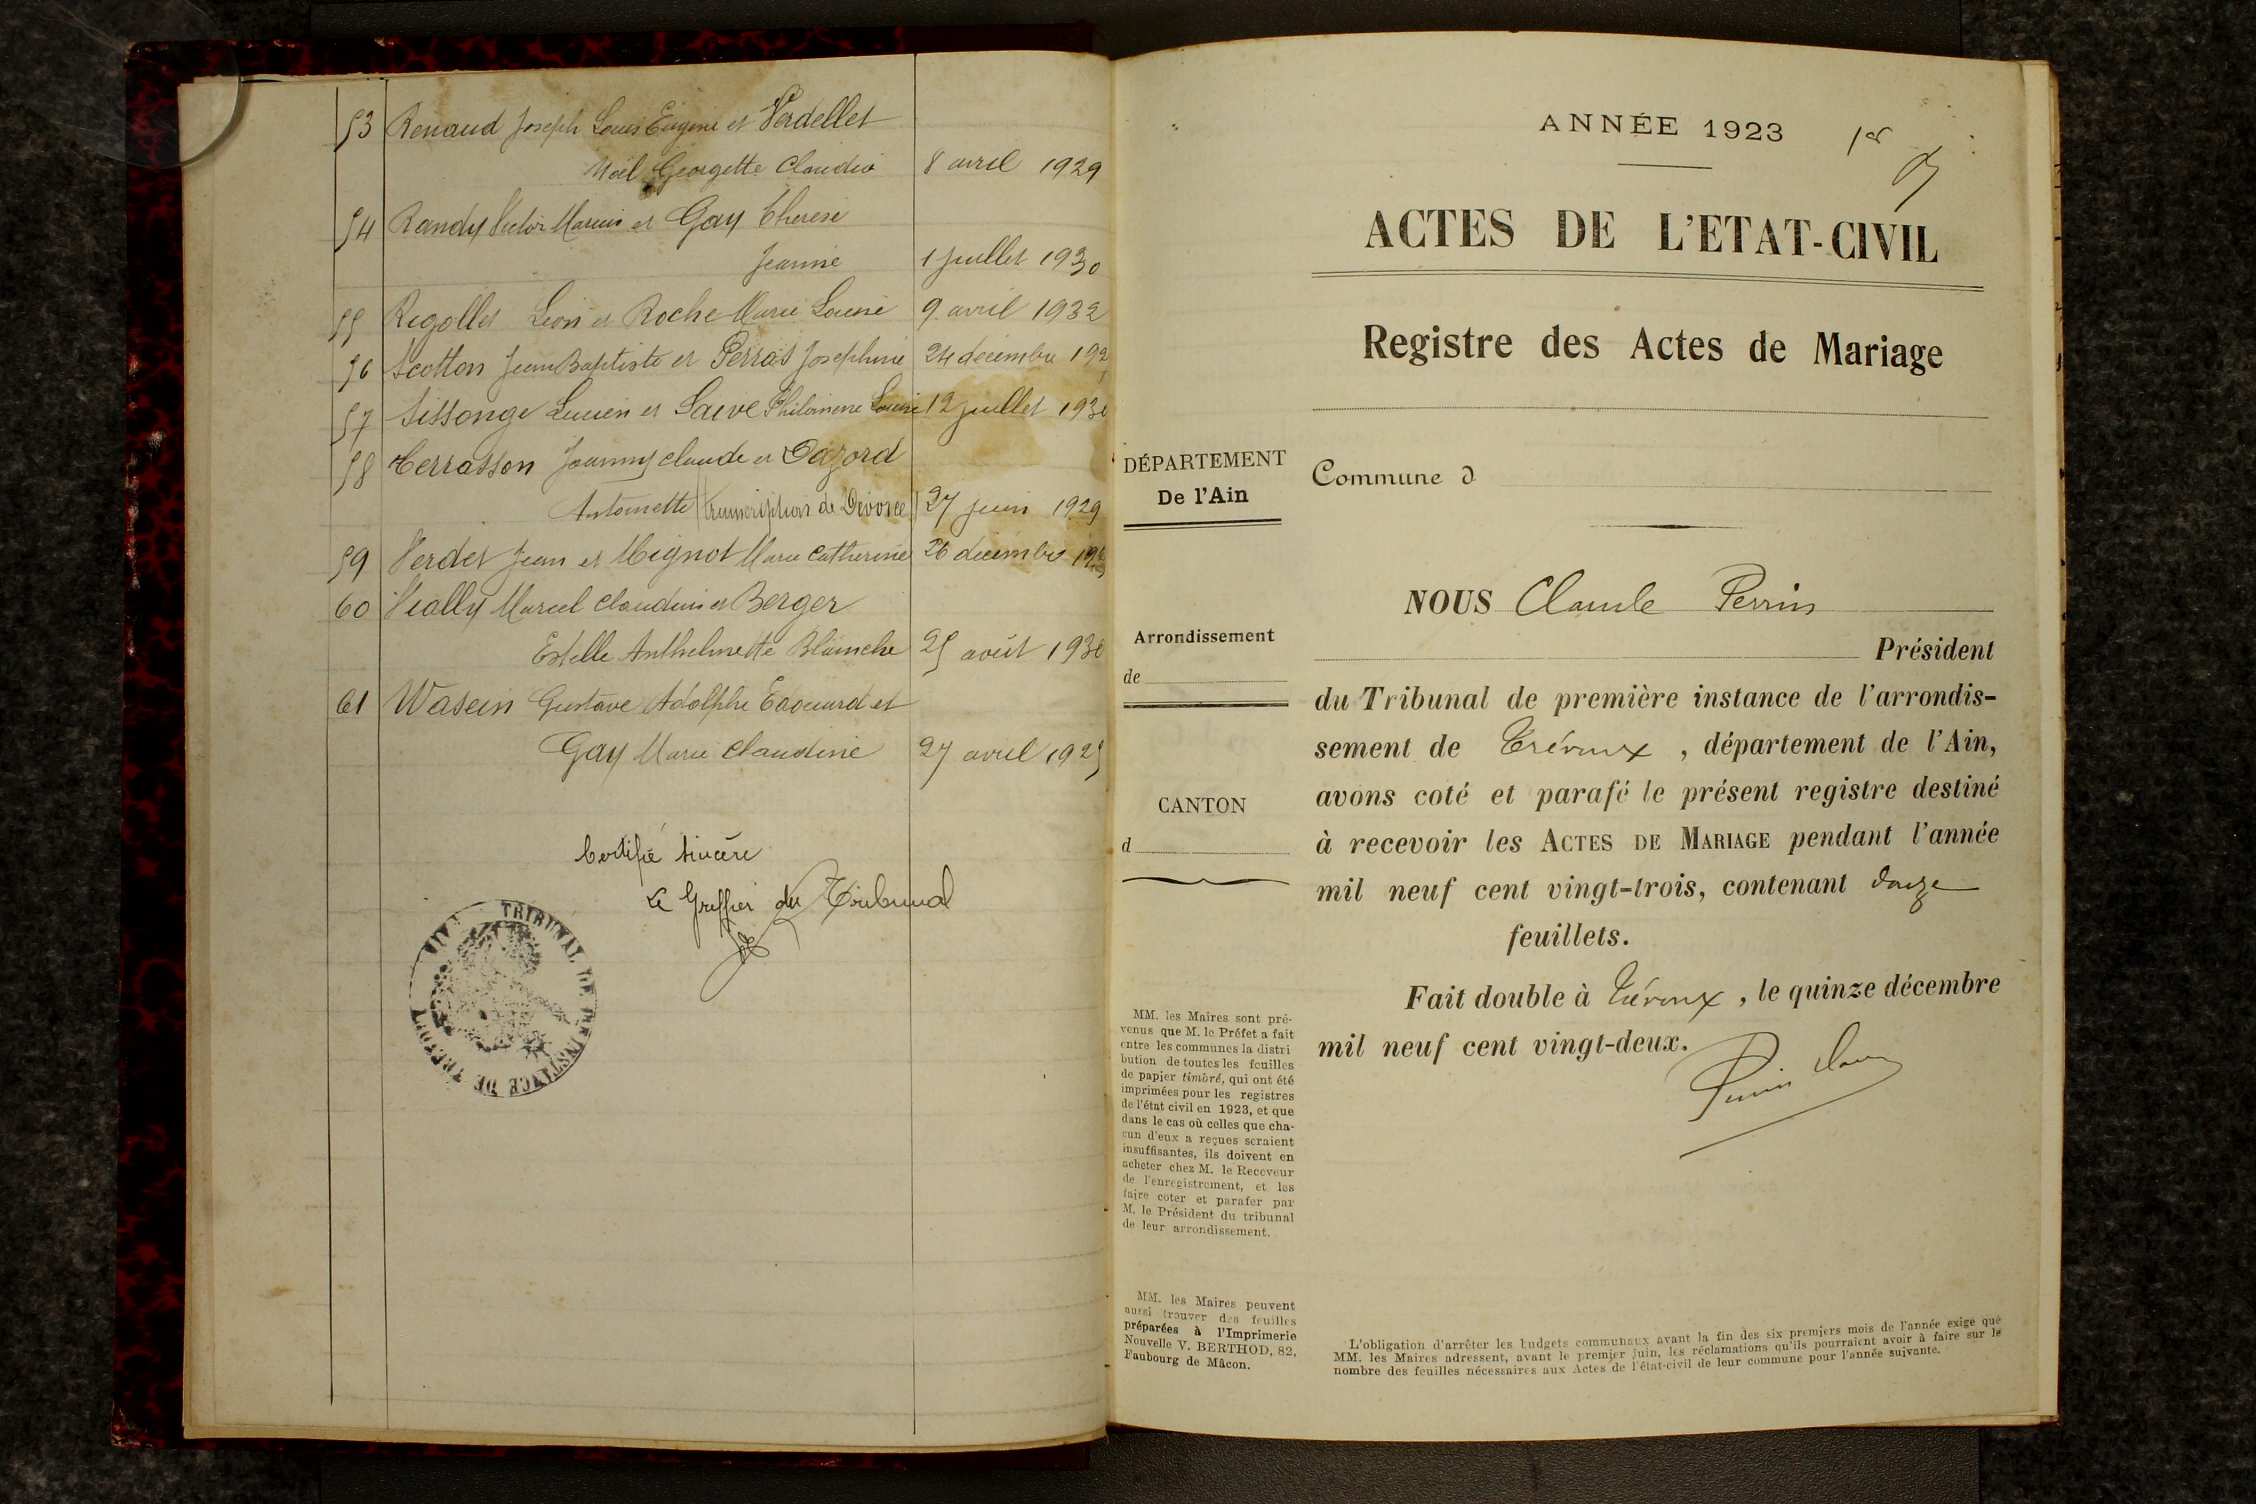 53 Renaud Joseph Louis Eugène et Verdellet
Noël Georgette Claudia 8 avril 1929
54 Randy Victor Marius et Gay Therese
Jeanne 1 juillet 1930
55 Rigollet Léon et Roche Marie Louise 9 avril 1932
56 Scotton Jean Baptiste et Perras Josephine 24 décembre 192
57 Sissonge Lucien et Saeve Philomene Louise 12 juillet 193
58 Terrasson Joanny Claude et Dazord
Antoinette (transcription de Divorce) 27 juin 1929
59 Verdet Jean et Mignot Marie Catherine 26 décembre
60 Vially Marcel Claudius et Berger
Estelle Anthelmette Blanche 25 août 193
61 Wasein Gustave Adolphe Edouard et
Gay Marie Claudine 27 avril 1925
Certifié sincère
Le Greffier du Tribunal
TRIBUNAL DE INSTANCE DE
ANNÉE 1923 1er
ACTES DE L'ETAT-CIVIL
Registre des Actes de Mariage
DÉPARTEMENT
De l'Ain
Arrondissement
de
CANTON
d
MM. les Maires sont pré-
venus que M. le Préfet a fait
entre les communes la distri
bution de toutes les feuilles
de papier timbré, qui ont été
imprimées pour les registres
de l'état civil en 1923, et que
dans le cas où celles que cha-
cun d'eux a reçues seraient
insuffisantes, ils doivent en
acheter chez M. le Receveur
de l'enregistrement, et les
faire coter et parafer par
M. le Président du tribunal
de leur arrondissement.
MM. les Maires peuvent
aussi trouver des feuilles
préparées à l'Imprimerie
Nouvelle V. BERTHOD, 82,
Faubourg de Mâcon.
Commune d
NOUS Claude Perrin
Président
du Tribunal de première instance de l'arrondis-
sement de Trévoux, département de l'Ain,
avons coté et parafé le présent registre destiné
à recevoir les ACTES DE MARIAGE pendant l'année
mil neuf cent vingt-trois, contenant douze
feuillets.
Fait double à Trévoux, le quinze décembre
mil neuf cent vingt-deux.
Perrin Claude
L'obligation d'arrêter les budgets communaux avant la fin des six premiers mois de l'année exige que
MM. les Maires adressent, avant le premier juin, les réclamations qu'ils pourraient avoir à faire sur le
nombre des feuilles nécessaires aux Actes de l'état-civil de leur commune pour l'année suivante.